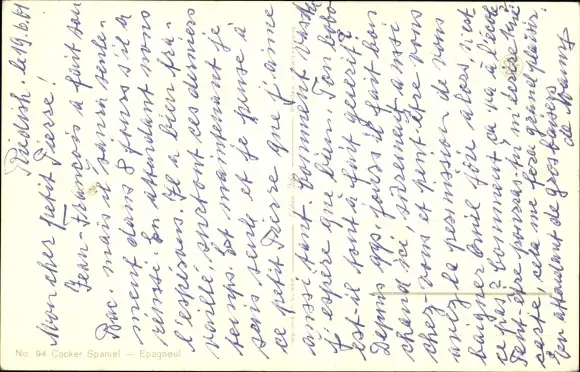 le 19.6.61
Mon cher petit Pierre!
Jean-François a fait son
Bac mais il saura seule-
ment dans 8 jours s'il a
réussi. En attendant nous
l'espérons. Il a bien tra-
vaillé, surtout ces derniers
temps. Et maintenant je
suis seule et je pense à
ce petit Pierre que j'aime
aussi tant. Comment vas-tu
J'espère que bien. Ton bobo
est-il tout à fait guérit?
Depuis qqs. jours il fait bon
chaud ici, sûrement aussi
chez-vous et peut-être vous
avez la permission de vous
baigner. Quelle joie alors, n'est
ce pas? Comment ça va à l'école
Peut-être pourras-tu m'écrire une
carte, cela me fera grand plaisir.
En attendant de gros baisers
de Mamy
No. 94 Cocker Spaniel — Epagneul